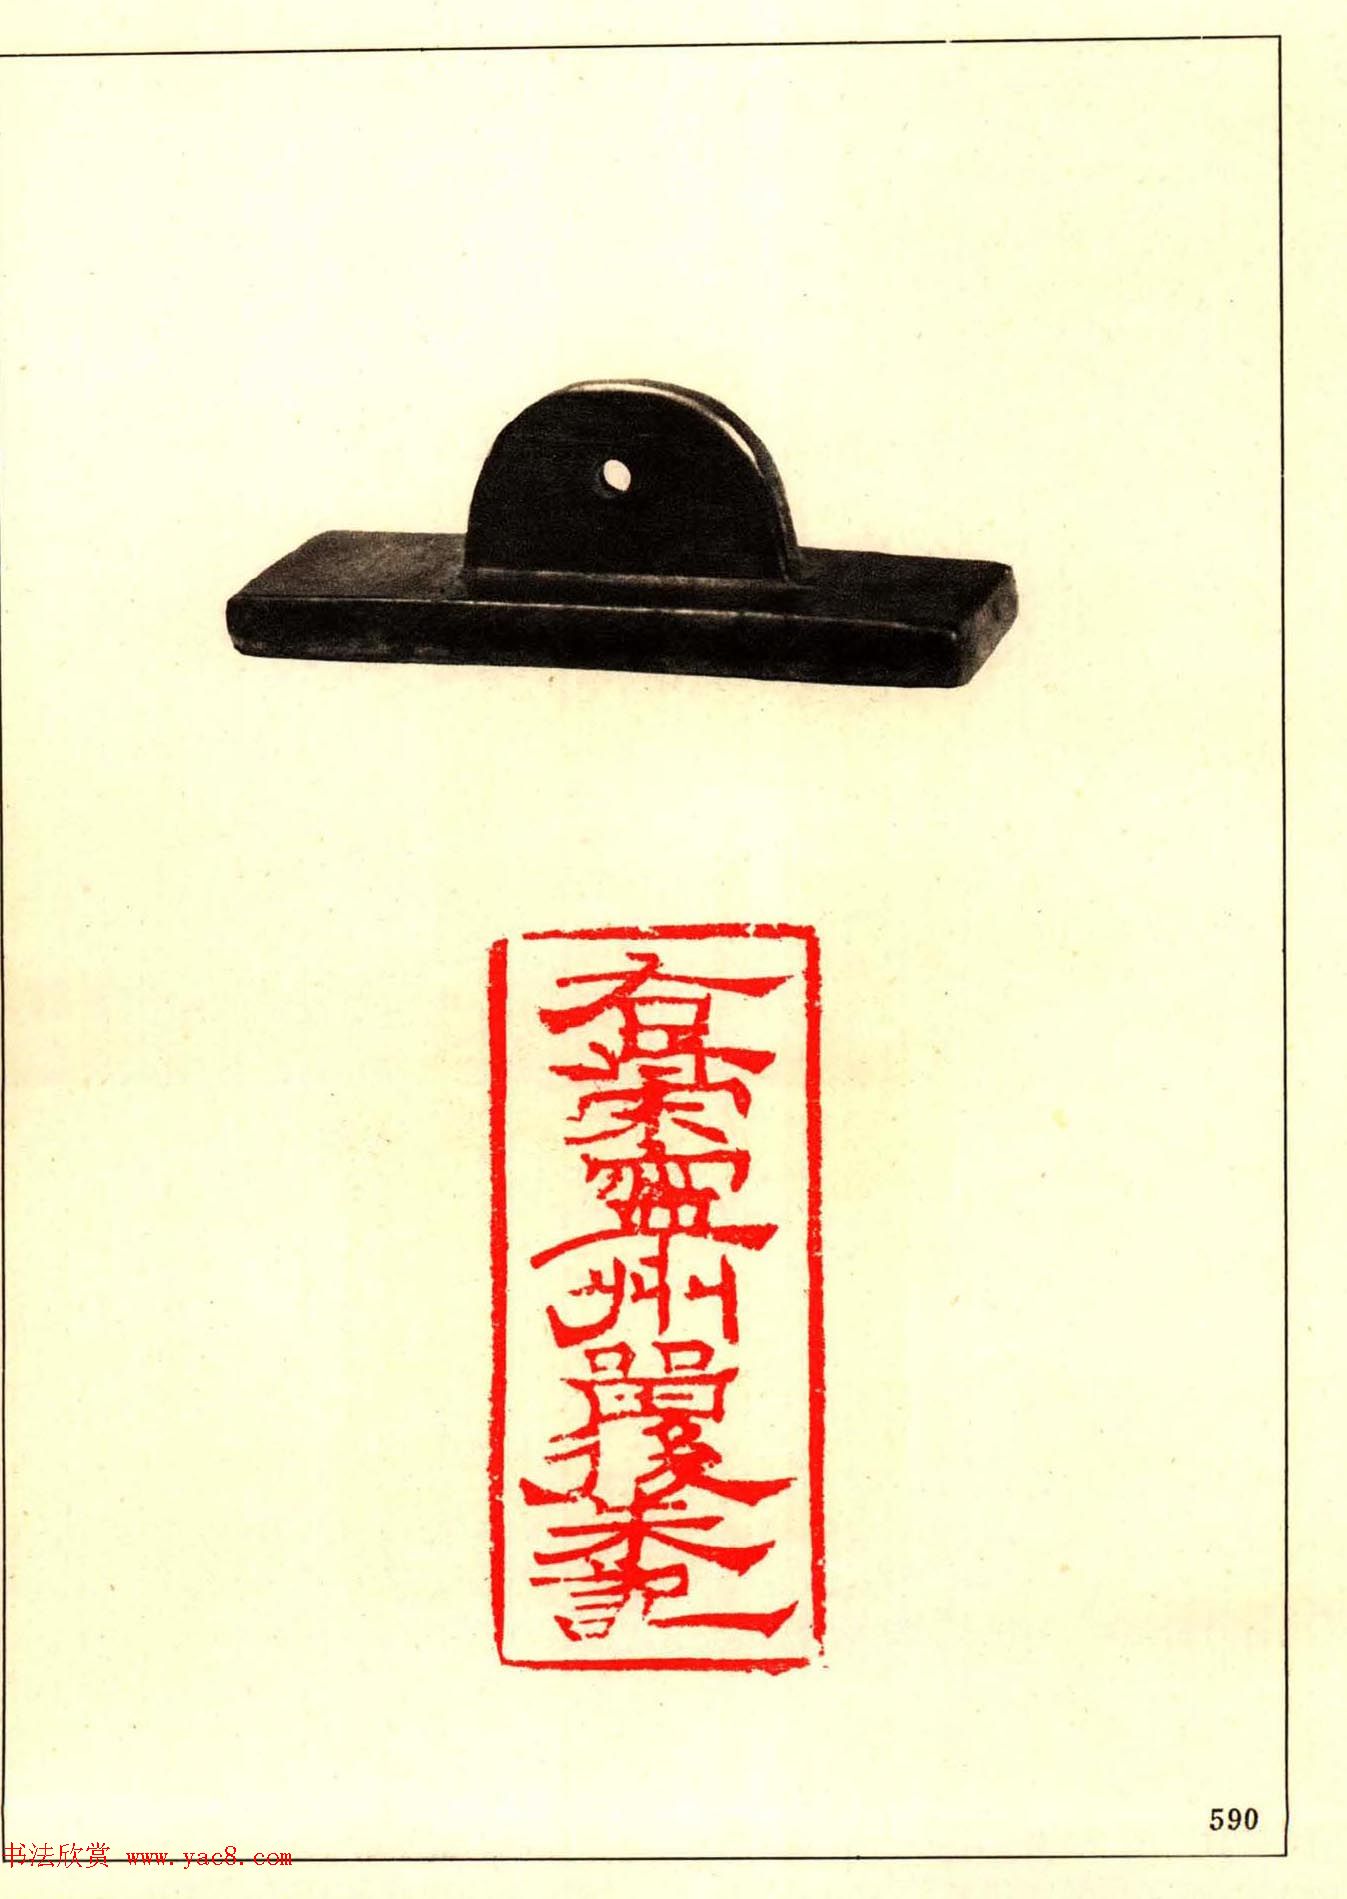 右策寧州留後朱記
590
书法欣赏 www.yac8.com